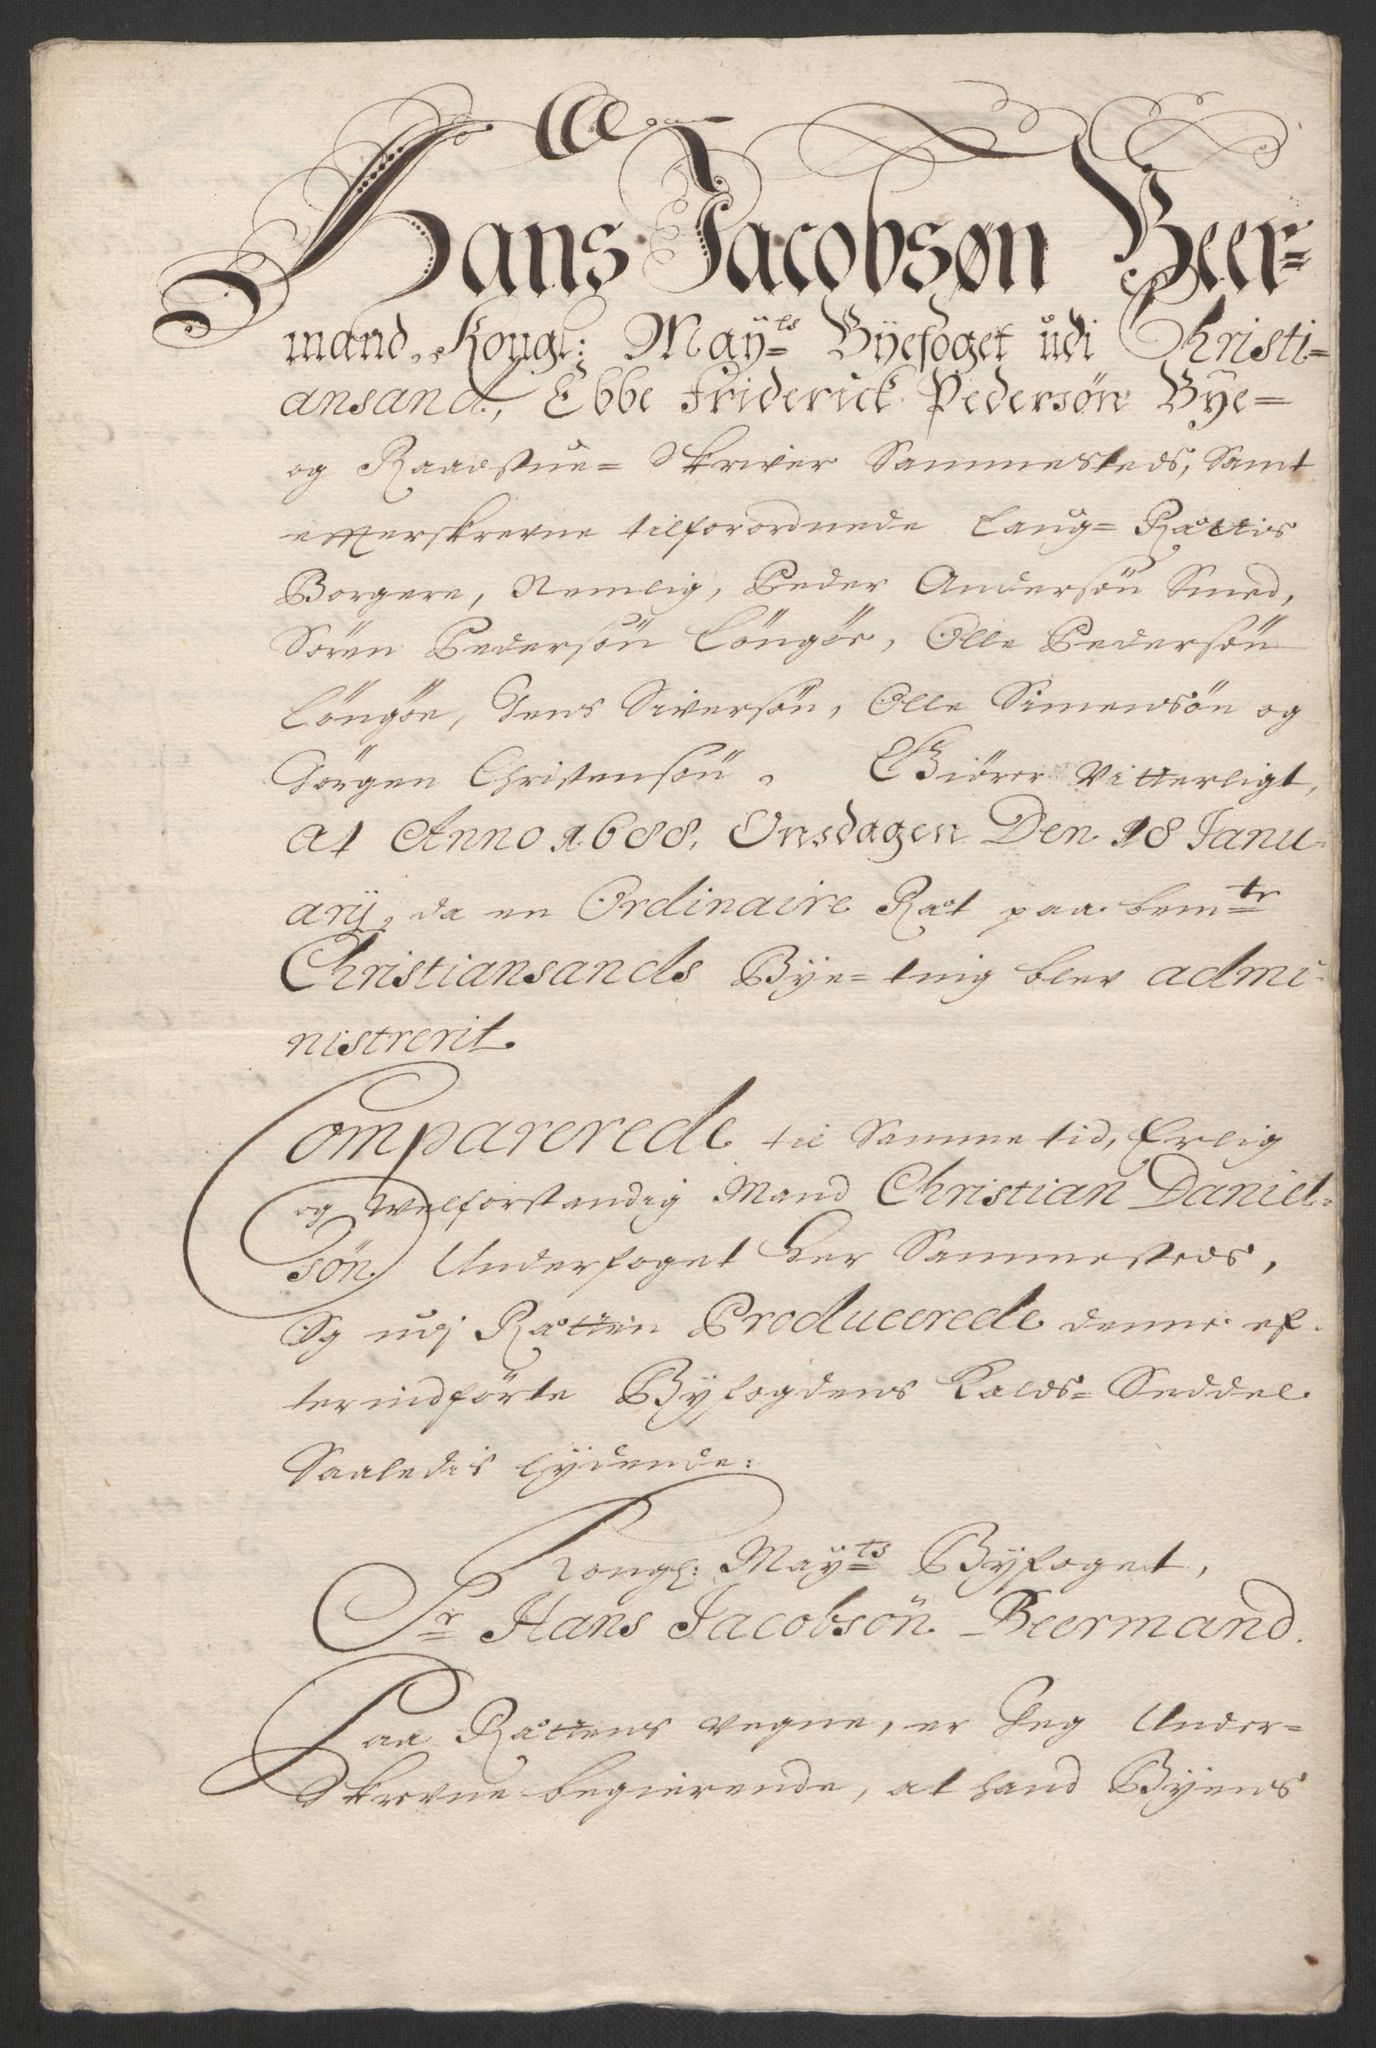 Hans Jacobsøn Beer=
mand, Kongl: Maÿ^ts Bÿefoget udi Christi=
ansand, Ebbe Friderick Pedersøn Bÿe=
og Raadstue= Skriver Sammesteds, Samt
effterskrevne tilforordnede Laug= Rættis
Borgere, Nemlig, Peder Andersön Smed,
Sören Pedersön Löngöe, Olle Pedersön
Löngöe, Jens Siversön, Olle Simensön og
Jörgen Christensön. Giörer Vitterligt,
at Anno 1688, Onsdagen Den 18 Janu-
arij, da en Ordinaire Ræt paa bem^te
Christiansands Bÿe=ting blev admi-
nistrerit.
Comparerede til Samme tid, Erlig
og Welforstandig Mand Christian Daniel-
søn Underfoget her Sammesteds,
Og udj Rætten Producerede denne ef-
terindförte Byfogdens Kalds= Seddel
Saaledis lÿdende:
Kongl: Maÿ^ts Byfoget,
S^r Hans Jacobsön Beermand.
Paa Rættens vegne, er Jeg Under=
Skrevne begierende, at hand Byens